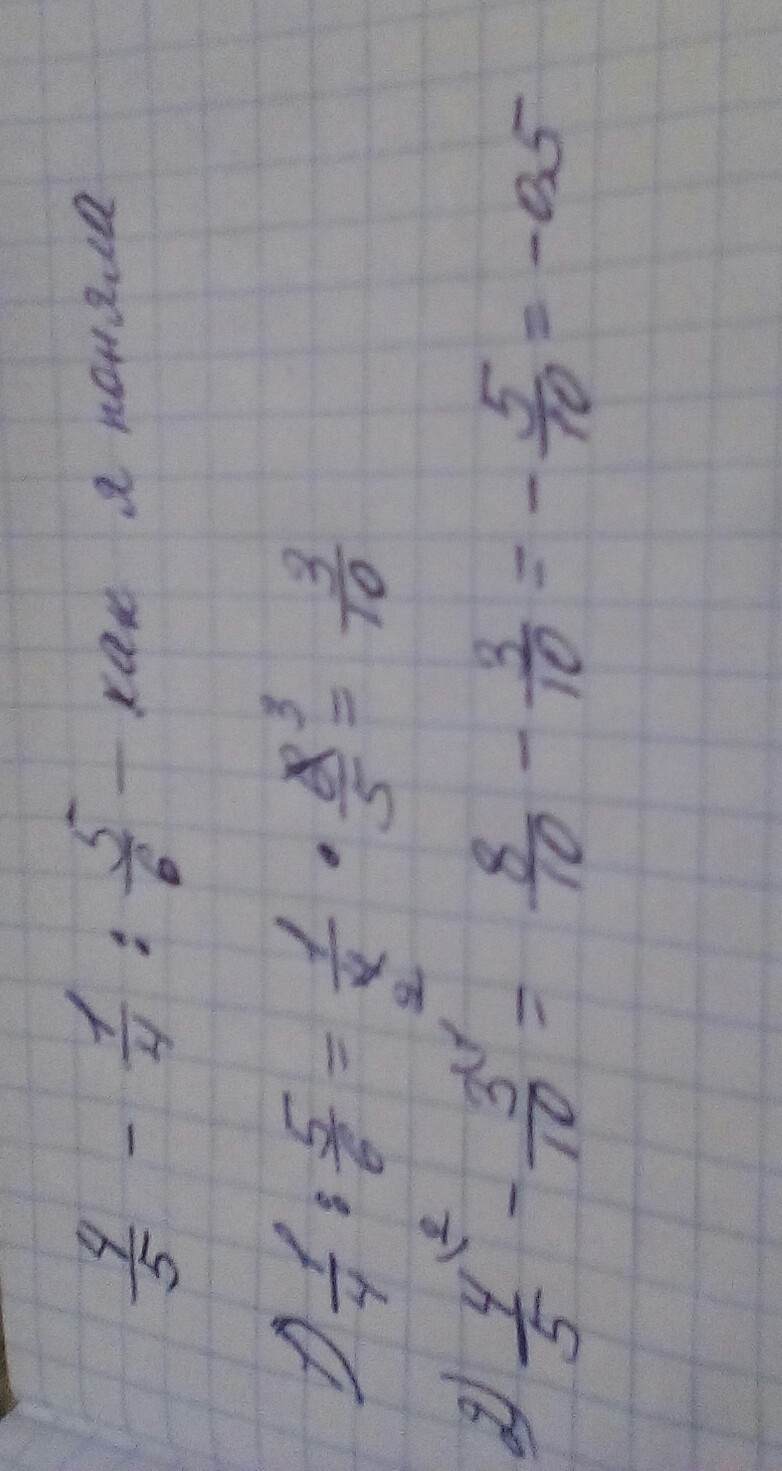 4/5 - 1/4 : 5/6 — как я поняла
1) 1/4 : 5/6 = 1/4 2 · 6/5 3 = 3/10
2) 4/5 \2 - 3/10 \1 = 8/10 - 3/10 = - 5/10 = - 0,5